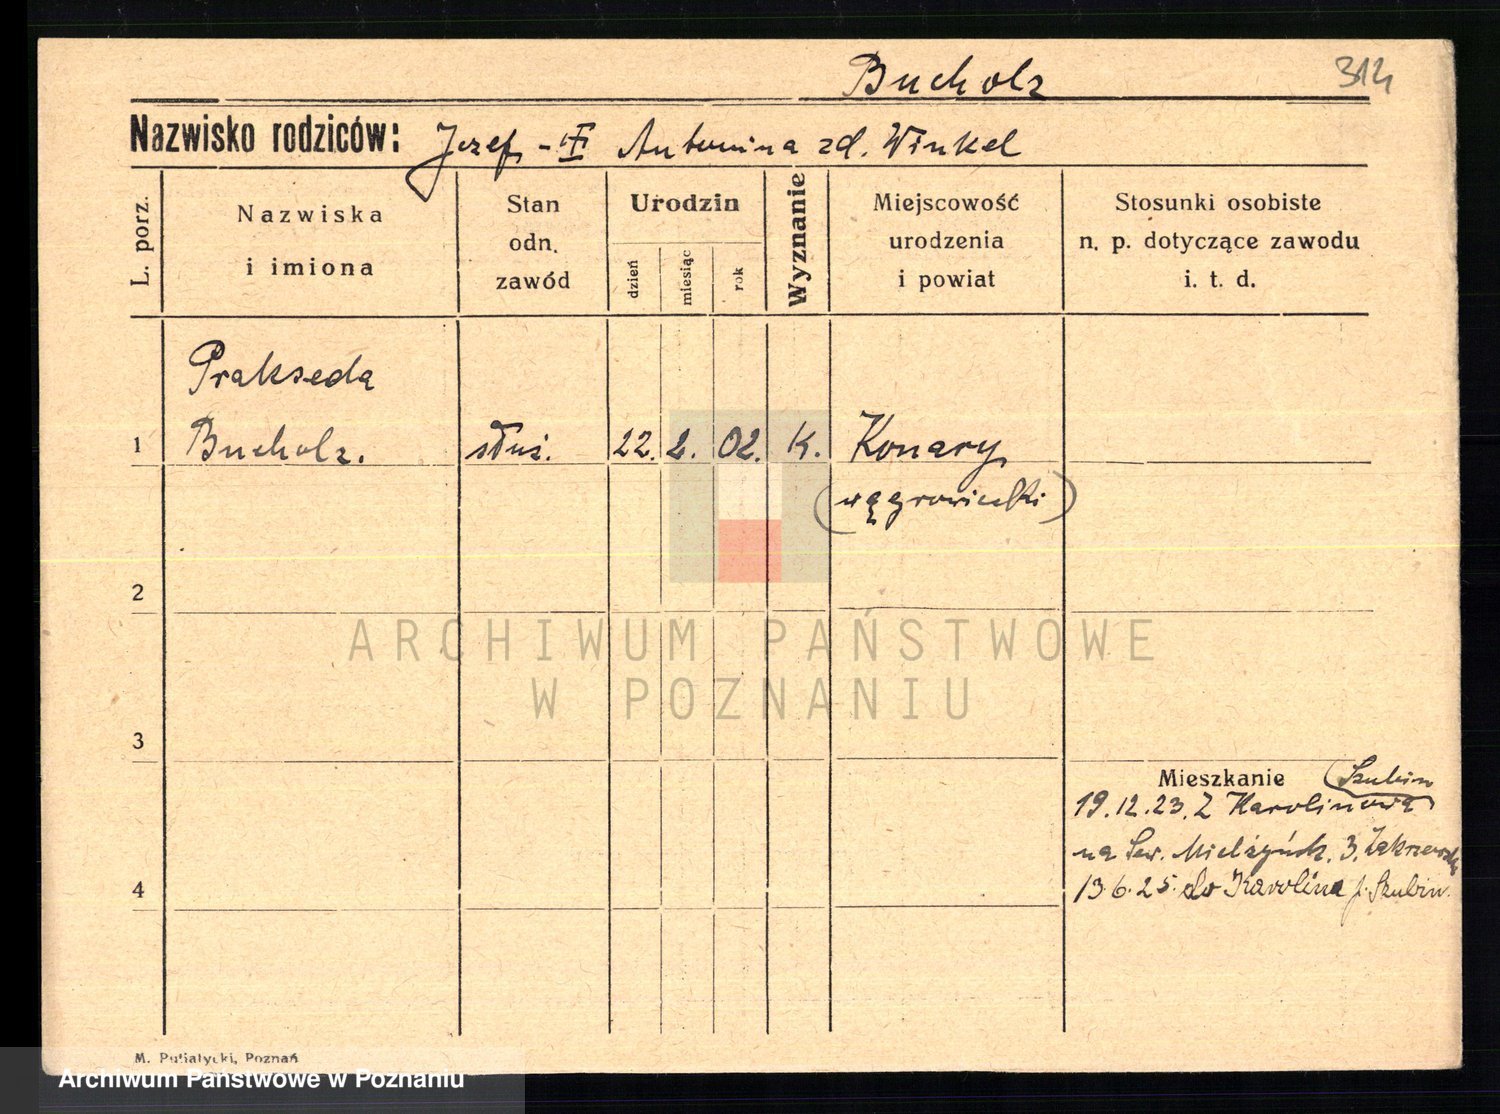 Bucholz
314
Nazwisko rodziców: Jozef - Antonina zd. Winkel
L. porz.
Nazwiska
i imiona
Stan
odn.
zawód
Urodzin
dzień
miesiąc
rok
Wyznanie
Miejscowość
urodzenia
i powiat
Stosunki osobiste
n. p. dotyczące zawodu
i. t. d.
Prakseda
1 Bucholz. służ. 22. 2. 02. K. Konary
(wągrowiecki)
2
ARCHIWUM PAŃSTWOWE
W POZNANIU
3
Mieszkanie (Szubin
19.12.23. Z Karolinowa
na Sew. Mielżyńsk. 3,
4
13.6.25. do Karolina p. Szubin.
M. Putiatycki, Poznań
Archiwum Państwowe w Poznaniu